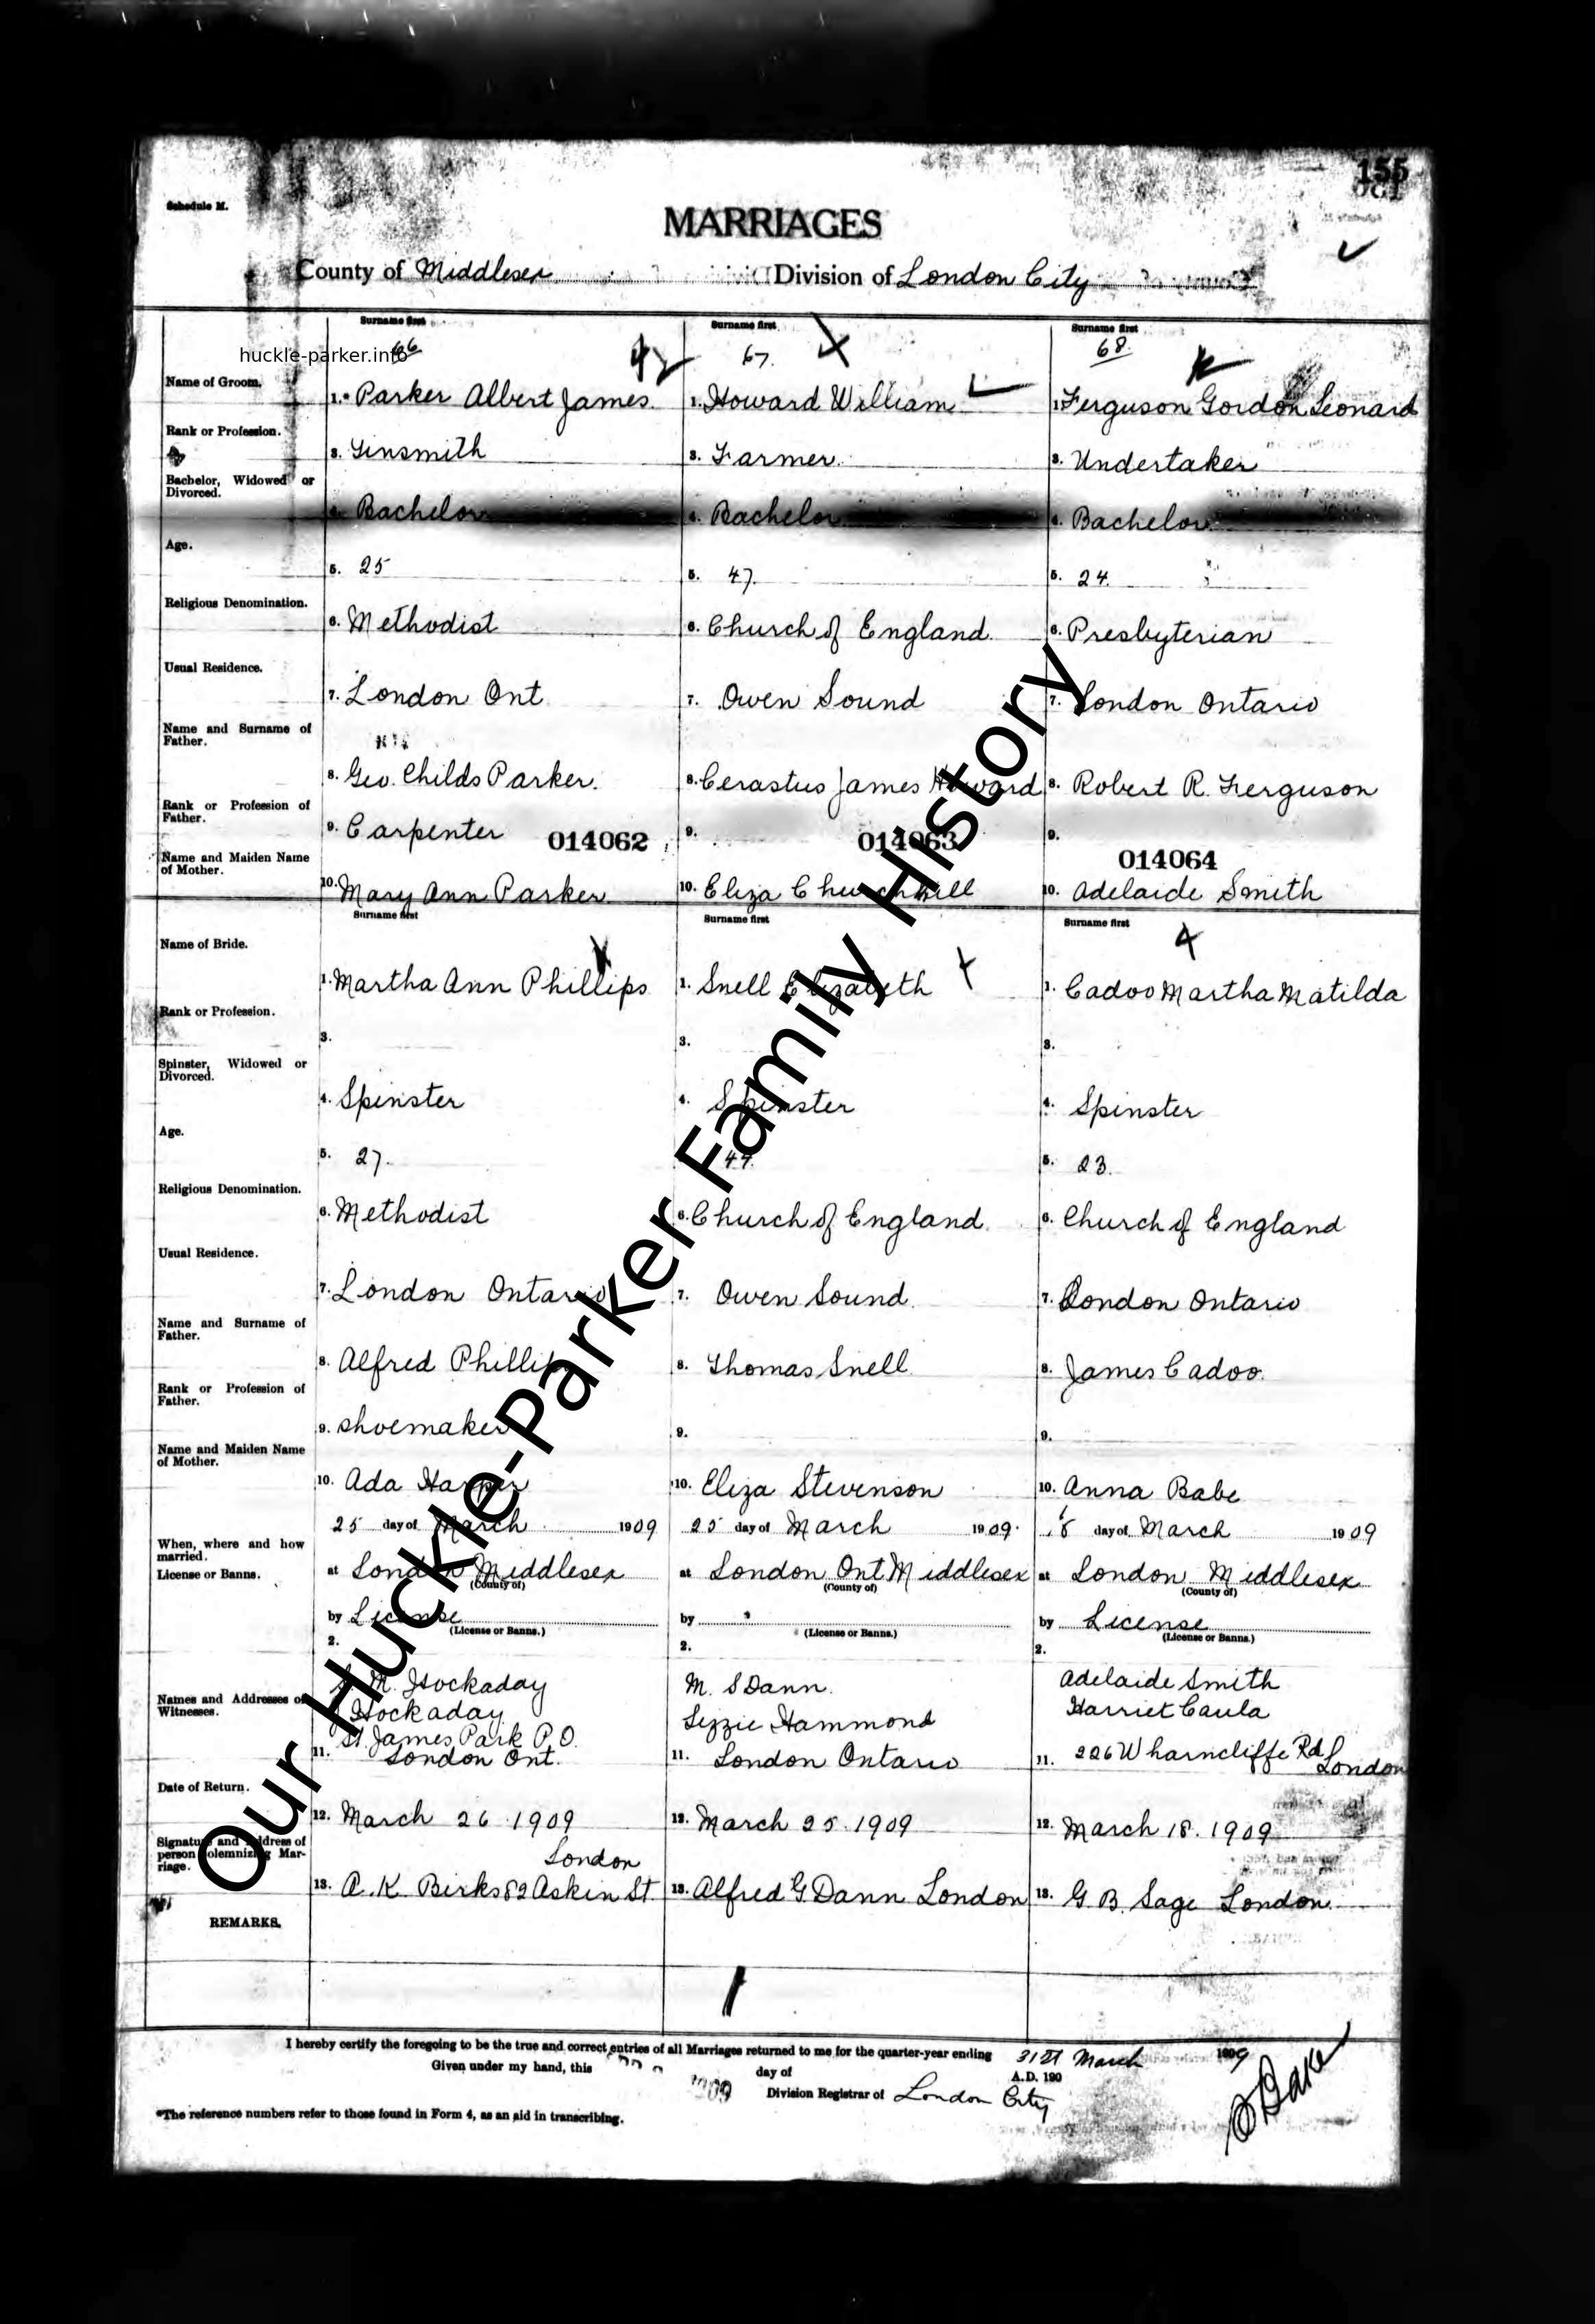 155
Schedule M.
MARRIAGES
County of Middlesex Division of London City
huckle-parker.info
Surname first Surname first Surname first
66 67. 68.
Name of Groom. 1.* Parker Albert James. 1. Howard William 1. Ferguson Gordon Leonard
Rank or Profession. 3. Tinsmith 3. Farmer. 3. Undertaker
Bachelor, Widowed or Divorced. Bachelor 4. Bachelor 4. Bachelor
Age. 5. 25 5. 47. 5. 24.
Religious Denomination. 6. Methodist 6. Church of England. 6. Presbyterian
Usual Residence. 7. London Ont. 7. Owen Sound 7. London Ontario
Name and Surname of Father. 8. Geo. Childs Parker. 8. Cerastus James Howard 8. Robert R. Ferguson
Rank or Profession of Father. 9. Carpenter 9. 9.
014062 014063 014064
Name and Maiden Name of Mother. 10. Mary Ann Parker 10. Eliza Churchill 10. Adelaide Smith
Surname first Surname first Surname first
Name of Bride. 1. Martha Ann Phillips 1. Snell Elizabeth 1. Cadoo Martha Matilda
Rank or Profession. 3. 3. 3.
Spinster, Widowed or Divorced. 4. Spinster 4. Spinster 4. Spinster
Age. 5. 27. 5. 23.
Religious Denomination. 6. Methodist 6. Church of England. 6. Church of England
Usual Residence. 7. London Ontario 7. Owen Sound. 7. London Ontario
Name and Surname of Father. 8. Alfred Phillips 8. Thomas Snell. 8. James Cadoo.
Rank or Profession of Father. 9. shoemaker 9. 9.
Name and Maiden Name of Mother. 10. Ada Harper 10. Eliza Stevenson 10. Anna Babe
When, where and how married. 25 day of March 1909 25 day of March 1909. 18 day of March 1909
License or Banns. at London Middlesex at London Ont Middlesex at London Middlesex
(County of) (County of) (County of)
by License by by License
(License or Banns.) (License or Banns.) (License or Banns.)
2. 2. 2.
Names and Addresses of Witnesses. M. Hockaday M. S Dann. Adelaide Smith
Hockaday Lizzie Hammond Harriet Caula
St. James Park P.O.
11. London Ont. 11. London Ontario 11. 226 Wharncliffe Rd London
Date of Return. 12. March 26 1909 12. March 25. 1909 12. March 18. 1909
London
Signature and Address of person solemnizing Marriage. 13. A. K. Birks 82 Askin St 13. Alfred G. Dann London 13. G. B. Sage London.
REMARKS.
I hereby certify the foregoing to be the true and correct entries of all Marriages returned to me for the quarter-year ending 31st March 1909
Given under my hand, this day of A.D. 190
1909 Division Registrar of London City
*The reference numbers refer to those found in Form 4, as an aid in transcribing.
Our Huckle-Parker Family History